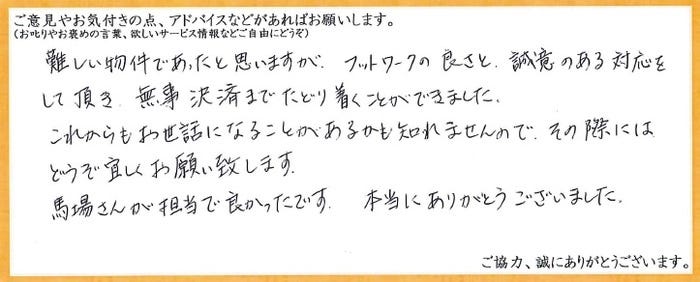 ご意見やお気付きの点、アドバイスなどがあればお願いします。
(お叱りやお褒めの言葉、欲しいサービス情報などご自由にどうぞ)
難しい物件であったと思いますが、フットワークの良さと、誠意のある対応を
して頂き、無事決済までたどり着くことができました。
これからもお世話になることがあるかも知れませんので、その際には
どうぞ宜しくお願い致します。
馬場さんが担当で良かったです。 本当にありがとうございました。
ご協力、誠にありがとうございます。